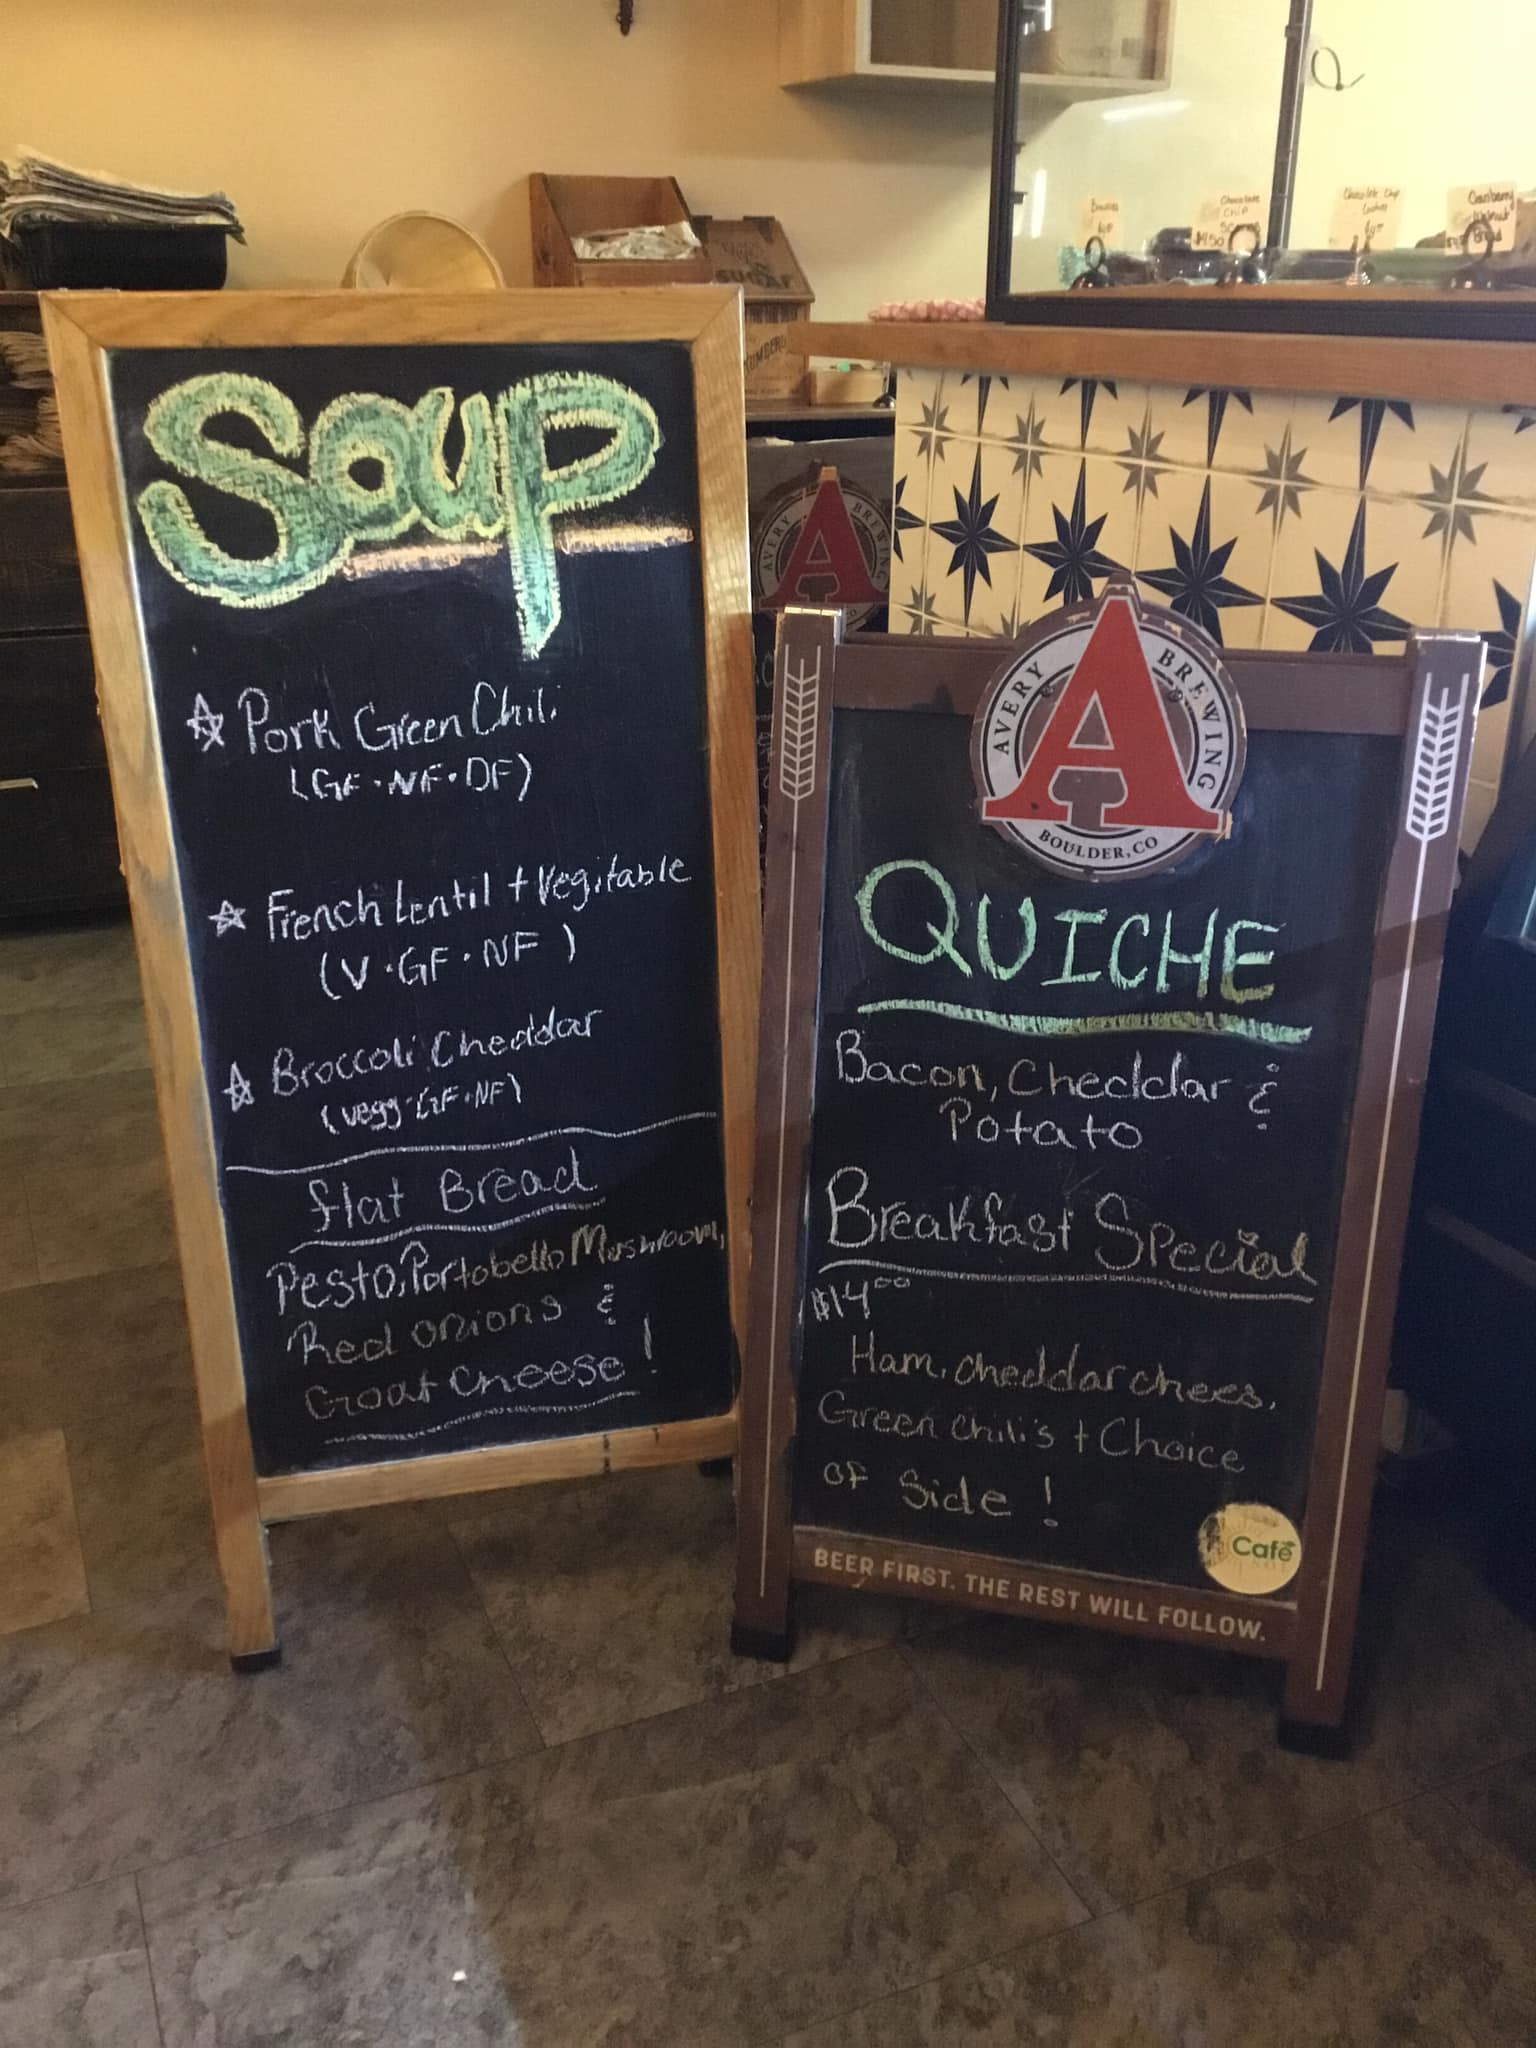 Soup
Pork Green Chili
(GF·NF·DF)
French Lentil + Vegitable
(V·GF·NF)
Broccoli Cheddar
(Vegg·GF·NF)
flat Bread
Pesto, Portobello Mushroom,
Red onions &
Goat cheese!
AVERY BREWING
A
BOULDER, CO
QUICHE
Bacon, Cheddar &
Potato
Breakfast Special
$14.00
Ham, cheddar chees,
Green chili's + Choice
of Side!
Café
BEER FIRST. THE REST WILL FOLLOW.
AVERY BREWING
A
SUGAR
Chocolate
Chip
Chocolate Chip
Cookies
Cranberry
Walnut
Bread